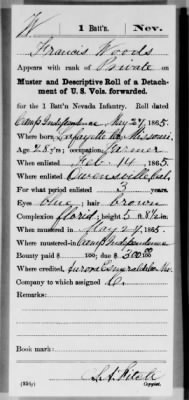 W. | 1 Batt'n. | Nev.
Francis Woods
Appears with rank of Private on
Muster and Descriptive Roll of a Detach-
ment of U. S. Vols. forwarded.
for the 1 Batt'n Nevada Infantry. Roll dated
Camp Independence May 27, 1865.
Where born Lafayette Co. Missouri.
Age 25 y'rs; occupation Farmer
When enlisted Feb. 14, 1865
Where enlisted Owensville Cal.
For what period enlisted 3 years.
Eyes blue; hair brown
Complexion florid; height 5 ft. 8½ in.
When mustered in May 27, 1865.
Where mustered-in Camp Independence
Bounty paid $ 100; due $ 300 00/100
Where credited, Aurora Esmeralda Co. Nev.
Company to which assigned C.
Remarks:
Book mark:
(339g)
Copyist.